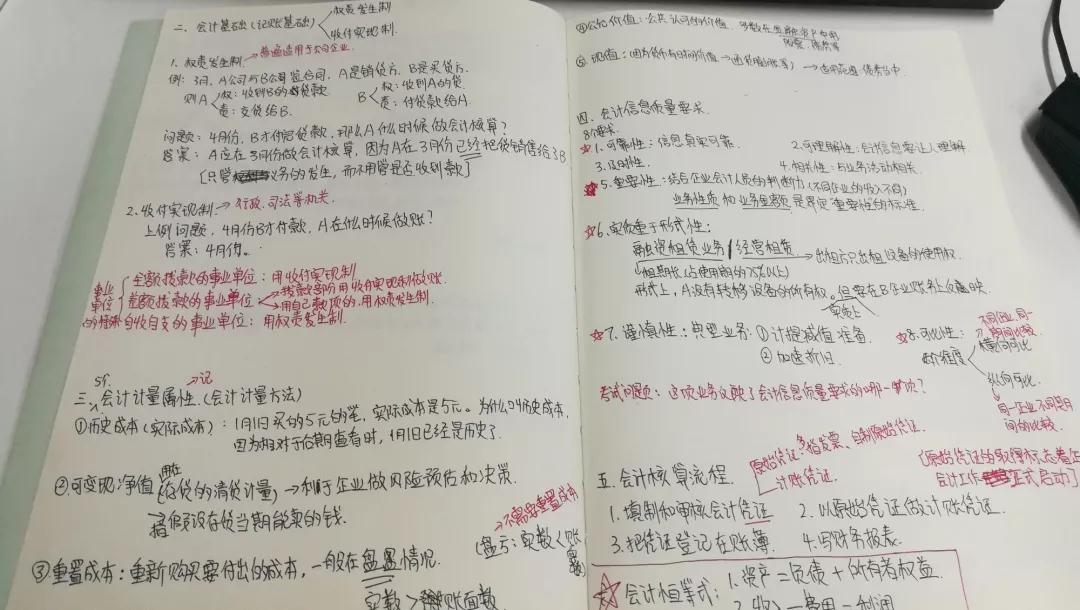 二、会计基础(记账基础) 权责发生制
收付实现制
1. 权责发生制 → 普遍适用于公司企业
例: 3月, A公司与B公司签合同, A是销货方, B是买货方.
则A 权: 收到B的贷款
责: 交货给B.
B 权: 收到A的货.
责: 付货款给A.
问题: 4月份, B才付给货款, 那么A什么时候做会计核算?
答案: A应在3月份做会计核算, 因为A在3月份已经把货销售给了B
[只管义务的发生, 而不用管是否收到款]
2. 收付实现制 → 行政、司法等机关.
上例问题, 4月份B才付款, A在什么时候做账?
答案: 4月份.
事业单位的特殊
全额拨款的事业单位: 用收付实现制
差额拨款的事业单位 拨款部分用收付实现制做账.
用自己款项的, 用权责发生制.
自收自支的事业单位: 用权责发生制.
→记
三、会计计量属性.(会计计量方法)
①历史成本(实际成本): 1月1日买的5元的笔, 实际成本是5元. 为什么叫历史成本,
因为相对于后期查看时, 1月1日已经是历史了.
用在
②可变现净值(存货的清货计量) → 利于企业做风险预估和决策.
→指假设存货当期能卖的钱.
③重置成本: 重新购买要付出的成本, 一般在盘盈情况.
实数>账面数
→不需要重置成本
(盘亏: 实数<账面数)
④公允价值: 公共认可的价值. 多数在金融资产中用
股票、债券等
⑤现值: 因为货币有时间价值
四、会计信息质量要求.
8个要求.
☆1. 可靠性: 信息真实可靠.
2. 可理解性: 会计信息要让人理解.
3. 及时性.
4. 相关性: 与业务活动相关.
☆5. 重要性: 结合企业会计人员的判断力(不同企业的收入不同)
业务性质和业务金额是界定重要性的标准.
☆6. 实质重于形式性:
融资租赁业务/经营租赁 → 出租方只出租设备的使用权.
租期长(占使用期的75%以上)
形式上, A没有转移设备的所有权. 但要在B企业账务上反映.
实质上
☆7. 谨慎性: 典型业务: ①计提减值准备.
②加速折旧.
☆8. 可比性:
两个维度
不同企业, 同一期间比较.
横向可比
纵向可比.
同一企业不同期间的比较.
考试问题: 这项业务反映了会计信息质量要求的哪一项?
五、会计核算流程.
原始凭证: 指发票、自制原始凭证.
记账凭证.
(原始凭证的取得标志着会计工作正式启动)
1. 填制和审核会计凭证
2. 以原始凭证做计账凭证.
3. 把凭证登记在账簿.
4. 写财务报表.
☆会计恒等式: 1. 资产=负债+所有者权益.
2. 收入-费用=利润